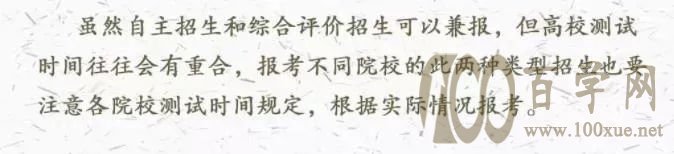 虽然自主招生和综合评价招生可以兼报，但高校测试
时间往往会有重合，报考不同院校的此两种类型招生也要
注意各院校测试时间规定，根据实际情况报考。
100百学网
www.100xue.net